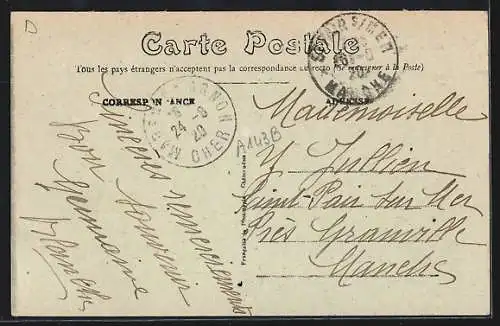 D
Carte Postale
Tous les pays étrangers n'acceptent pas la correspondance au recto (Se renseigner à la Poste)
CORRESPONDANCE
ADRESSE
ARNON
24 - 8
20
CHER
MANCHE
A143B
Mademoiselle
Y Jullien
Saint-Pair sur Mer
Près Granville
Manche
Sincères remerciements
souvenir
Bon
Germaine